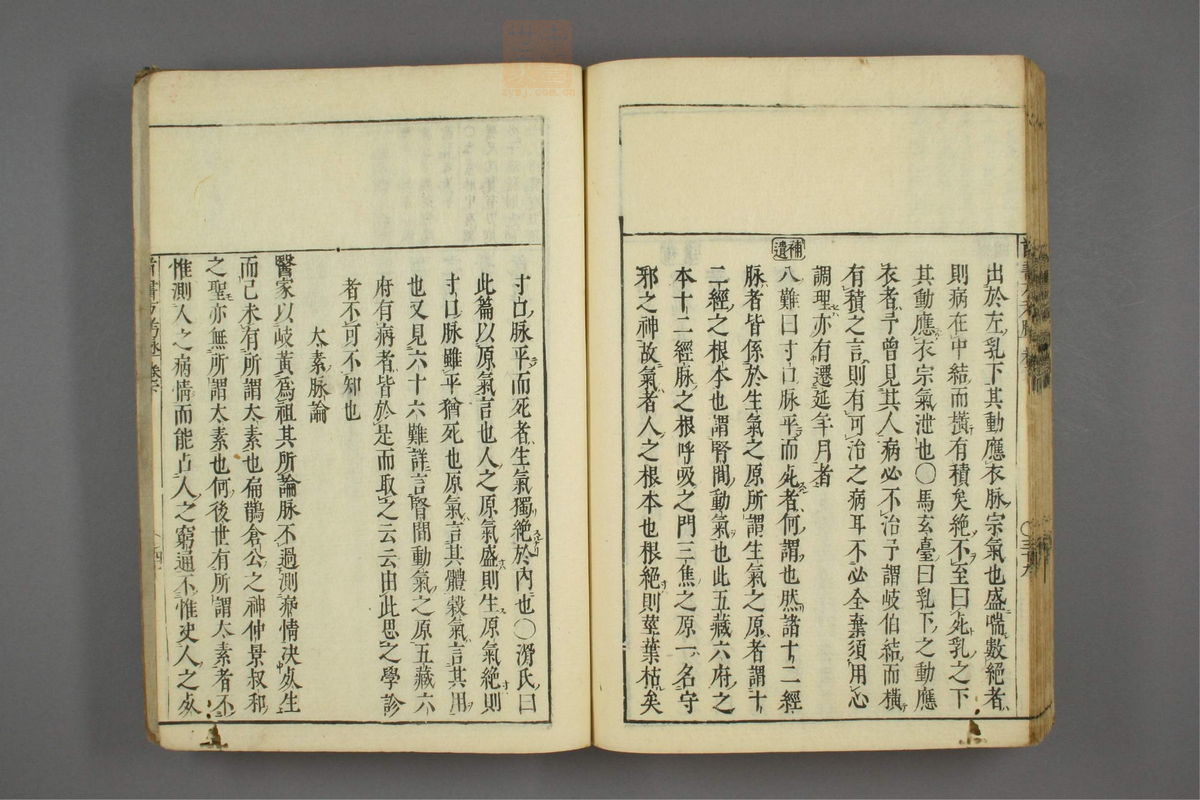 出於左乳下其動應衣脉宗氣也盛喘數絕者
則病在中結而橫有積矣絕不至曰死乳之下
其動應衣宗氣泄也〇馬玄臺曰乳下之動應
衣者予曾見其人病必不治予謂岐伯結而橫
有積之言則有可治之病耳不必全棄須用心
調理亦有遷延年月者
補遺
八難曰寸口脉平而死者何謂也然諸十二經
脉者皆係於生氣之原所謂生氣之原者謂十
二經之根本也謂腎間動氣也此五藏六府之
本十二經脉之根呼吸之門三焦之原一名守
邪之神故氣者人之根本也根絕則莖葉枯矣
寸口脉平而死者生氣獨絕於內也〇滑氏曰
此篇以原氣言也人之原氣盛則生原氣絕則
寸口脉雖平猶死也原氣言其體穀氣言其用
也又見六十六難詳言腎間動氣之原五藏六
府有病者皆於是而取之云云由此思之學診
者不可不知也
太素脉論
醫家以岐黃爲祖其所論脉不過測病情决死生
而已未有所謂太素也扁鵲倉公之神仲景叔和
之聖亦無所謂太素也何後世有所謂太素者不
惟測人之病情而能占人之窮通不惟决人之死